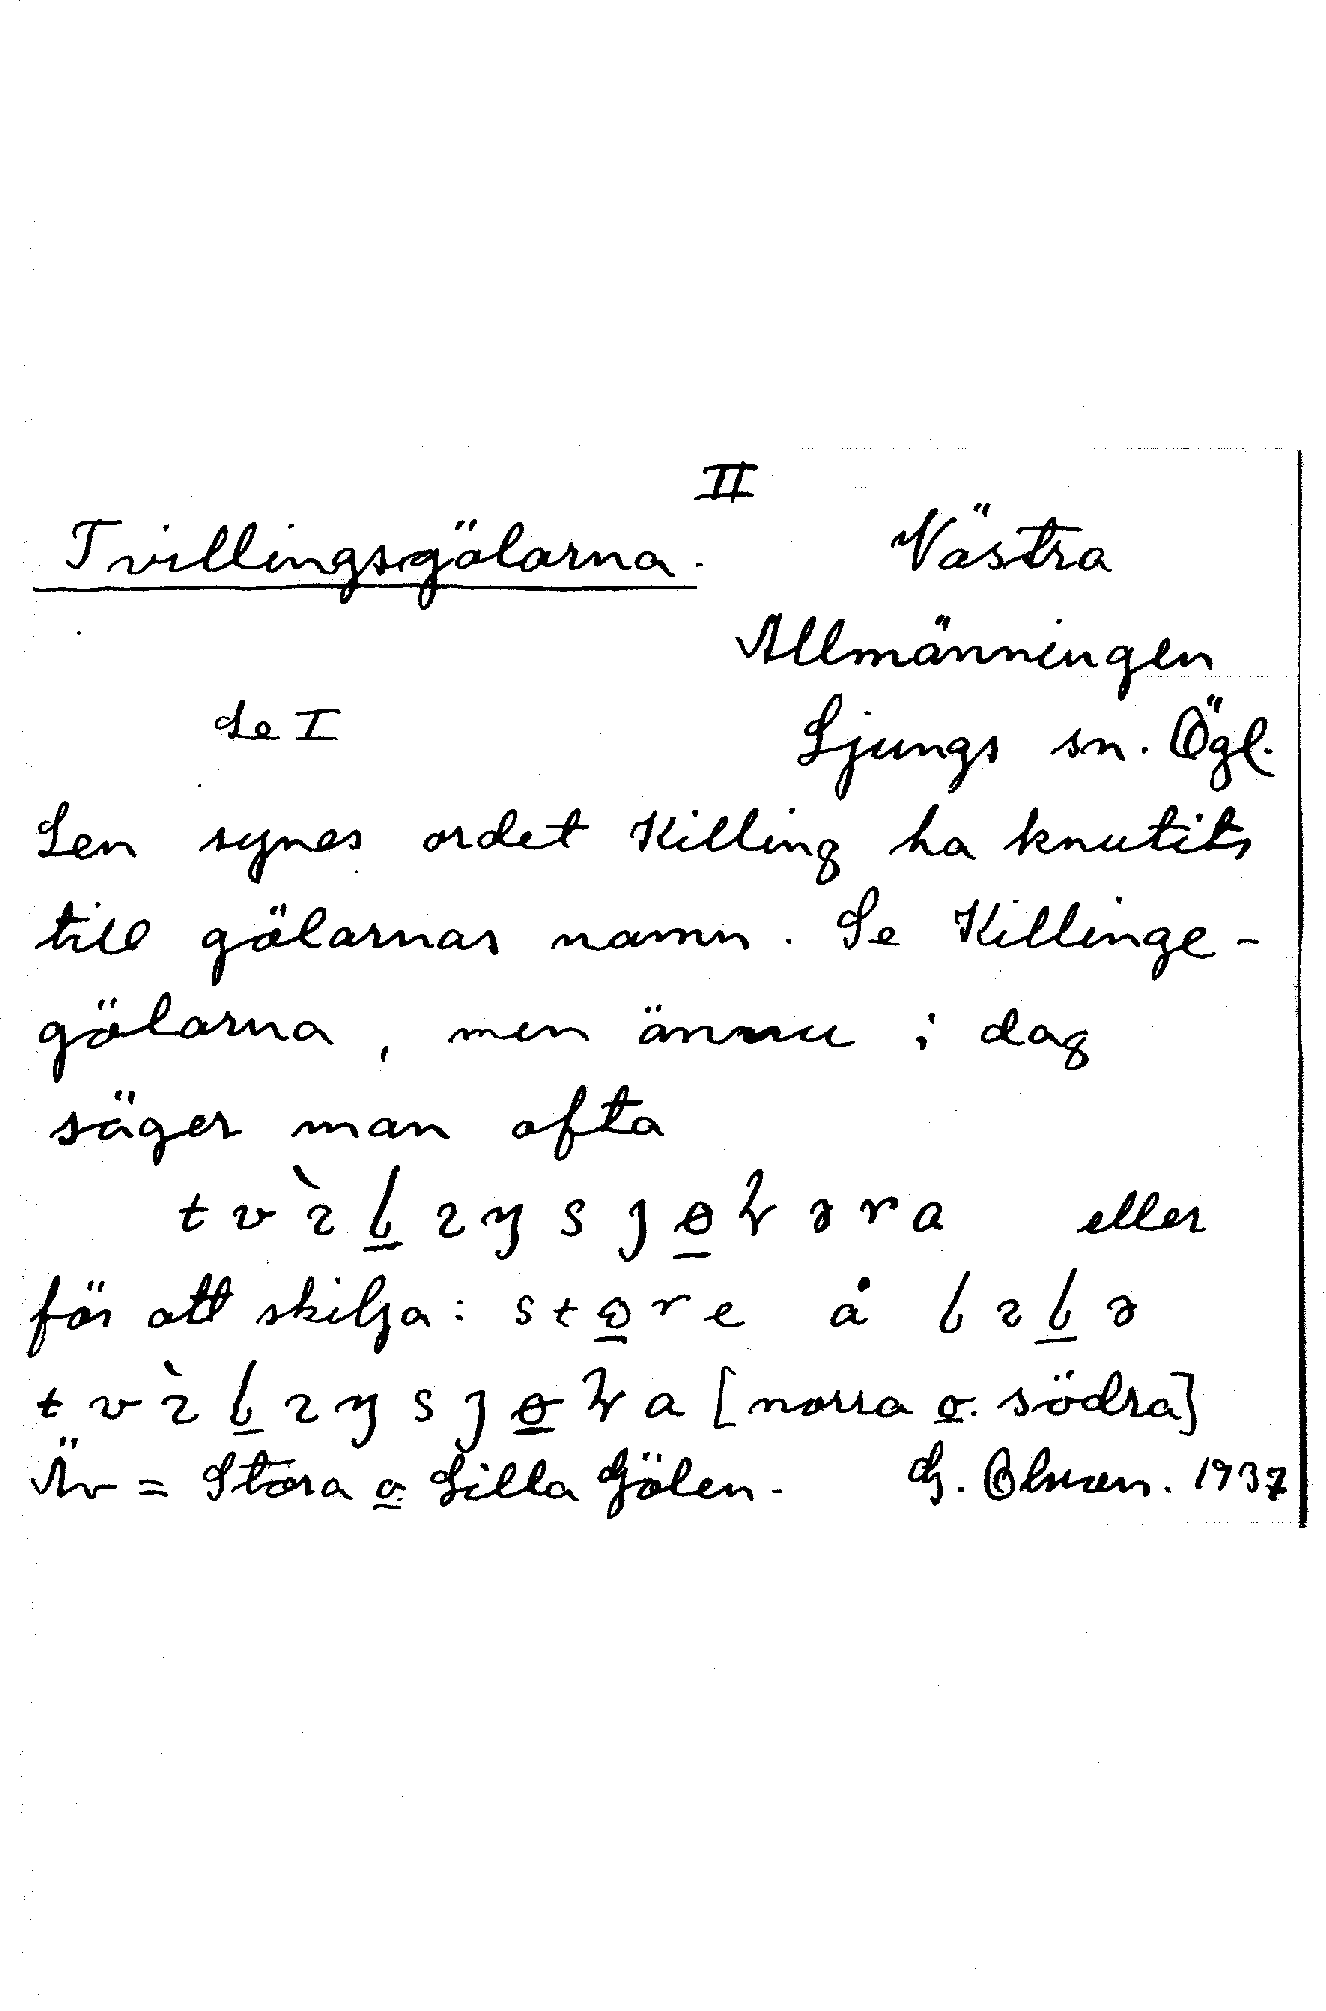 II
Tvillingsgölarna. Västra
Allmänningen
Se I Ljungs sn. Ögl.
Sen synes ordet Killing ha knutits
till gölarnas namn. Se Killinge-
gölarna, men ännu i dag
säger man ofta
eller
för att skilja:
[norra o. södra]
Äv = Stora o. Lilla Gölen. G. Olsson. 1937